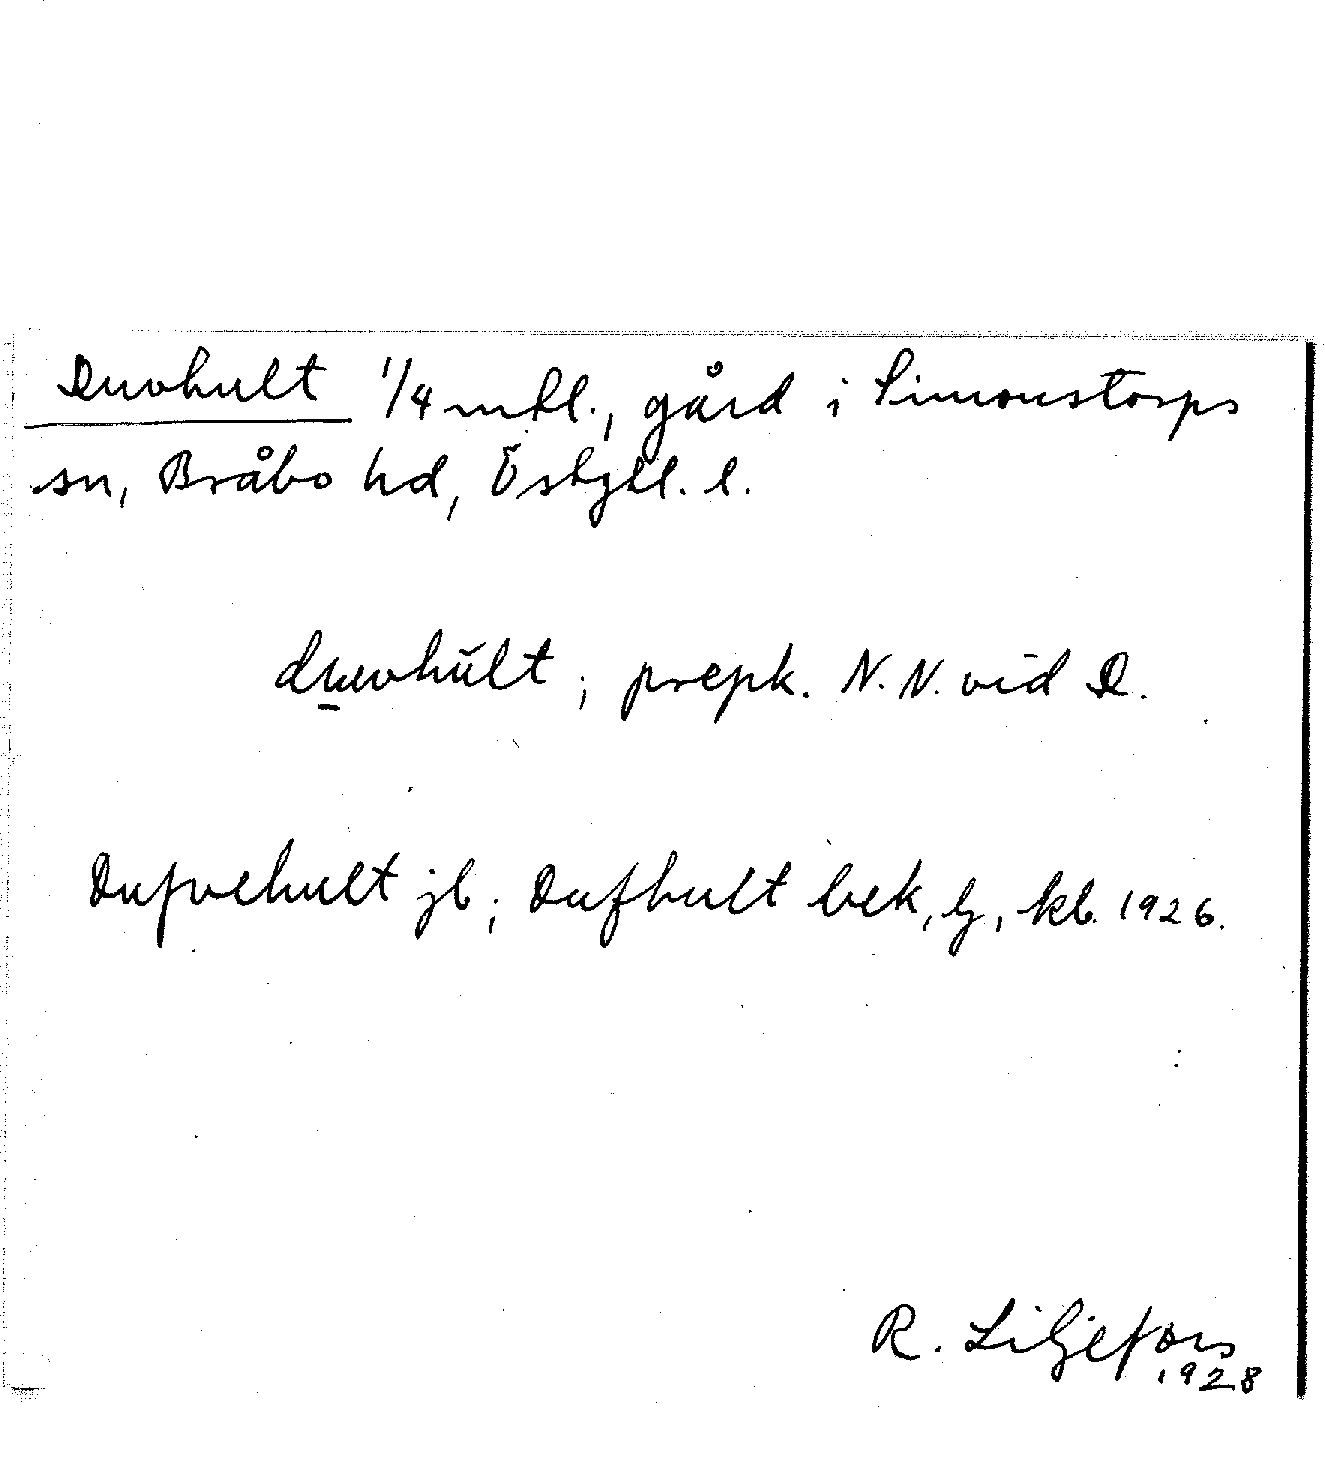 Duvhult 1/4 mtl., gård i Simonstorps
sn, Bråbo hd, Östgtl. l.
duvhult; prepk. N. N. vid D.
Dufvehult jb; Dufhult bek, kb. 1926.
R. Liljefors
1928